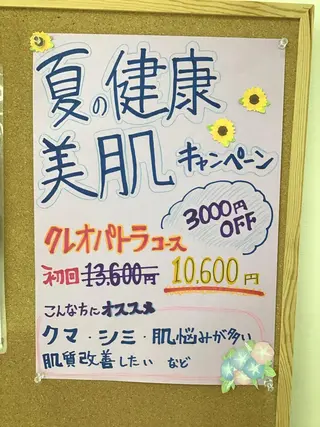 夏の健康
美肌キャンペーン
3000円
OFF
クレオパトラコース
初回 13.600円 10.600円
こんな方にオススメ
クマ・シミ・肌悩みが多い
肌質改善したい など